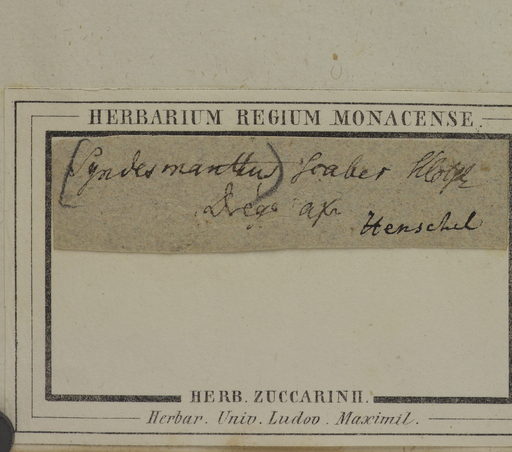 HERBARIUM REGIUM MONACENSE.
(Syndesmanthus) scaber Klotzsch
Drège afr.
Henschel
HERB. ZUCCARINII.
Herbar. Univ. Ludov. Maximil.